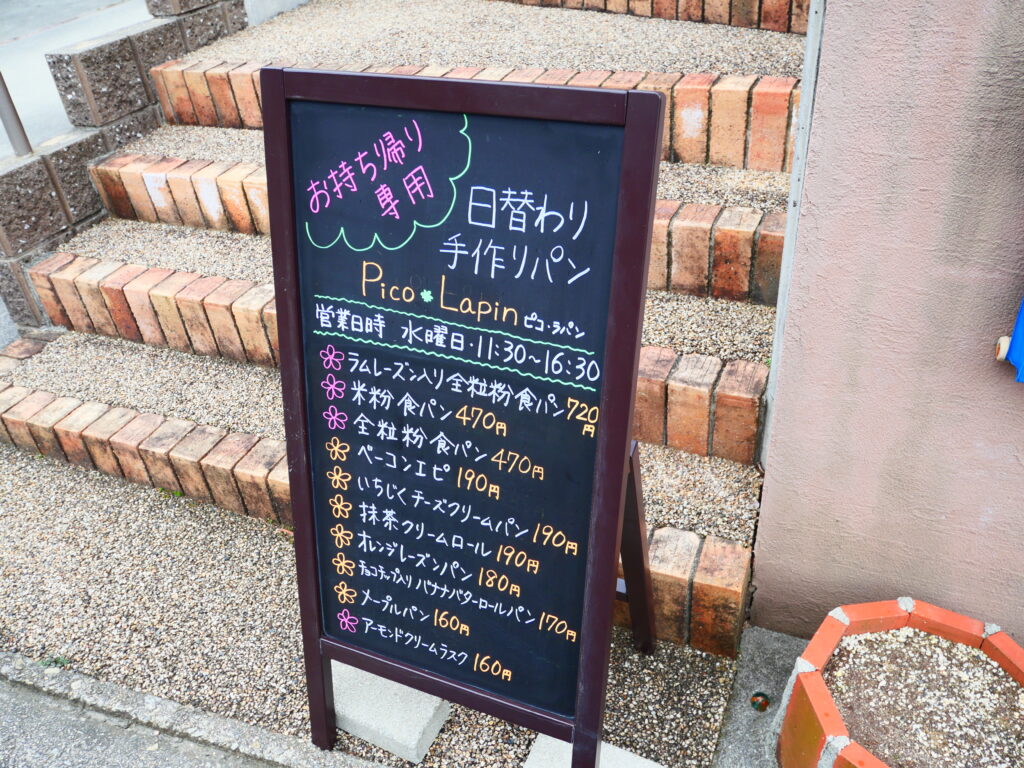 お持ち帰り
専用
日替わり
手作りパン
Pico Lapin ピコ・ラパン
営業日時 水曜日・11:30〜16:30
ラムレーズン入り全粒粉食パン720円
米粉食パン470円
全粒粉食パン470円
ベーコンエピ 190円
いちじくチーズクリームパン190円
抹茶クリームロール190円
オレンジレーズンパン180円
チョコチップ入りバナナバターロールパン170円
メープルパン160円
アーモンドクリームラスク160円